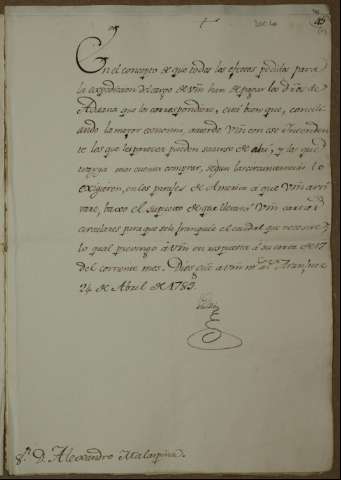 En el concepto de que todos los efectos pedidos para
la expedicion del cargo de Vm han de pagar los dros de
Aduana que les correspondiere, será bien que, concili
ando la mayor economia, acuerde Vm con ese Intenden
te los que les parece pueden sacarse de ahí, y los que
tenga mas cuenta comprar, segun las circunstancias lo
exigieren, en los parajes de America a que Vm arri
vare, baxo el supuesto de que llevará Vm cartas
circulares para que se le franquee el caudal que necesite;
lo qual prevengo á Vm en respuesta á su carta de 17
del corriente mes. Dios gue á Vm ms as Aranjuez
24 de Abril de 1789.
Sr. D. Alexandro Malaspina.